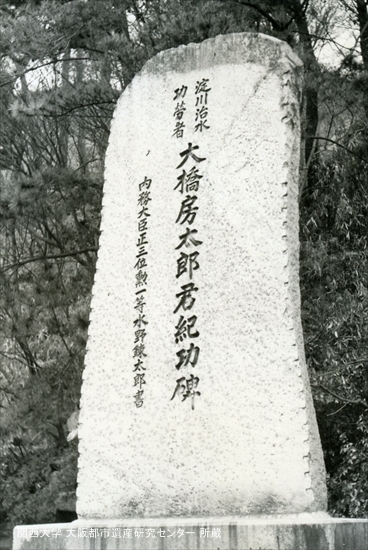 淀川治水
功労者
大橋房太郎君紀功碑
内務大臣正三位勲一等水野錬太郎書
関西大学 大阪都市遺産研究センター 所蔵